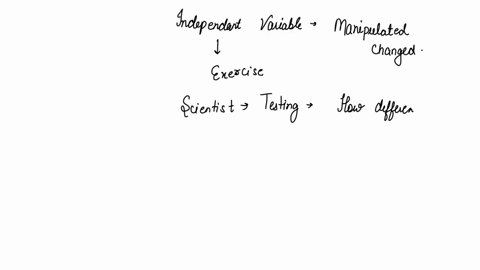 Independent Variable → Manipulated
changed.
↓
Exercise
Scientist → Testing → How differen